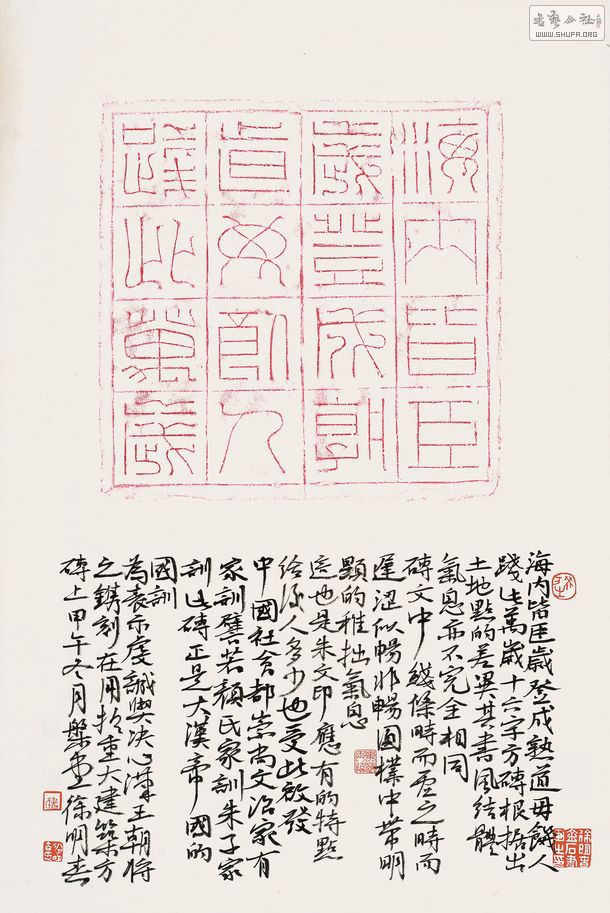 海内皆臣
歲登成孰
道毋飢人
踐此萬歲
海内皆臣歲登成熟道毋饑人
踐此萬歲十六字方磚根据出
土地點的差異其書風結體
氣息亦不完全相同
磚文中綫條時而之時而
遲澀似暢非暢圓樸中帶明
顯的稚拙氣息
這也是朱文印應有的特點
給人多少也受此啟發
中國社會都崇尚文治家有
家訓譬若顔氏家訓朱子家
訓此磚正是大漢帝國的
國訓
為表示虔誠與决心漢王朝將
之鐫刻在用於重大建築方
磚上甲午冬月徐明
书艺公社
WWW.SHUFA.ORG